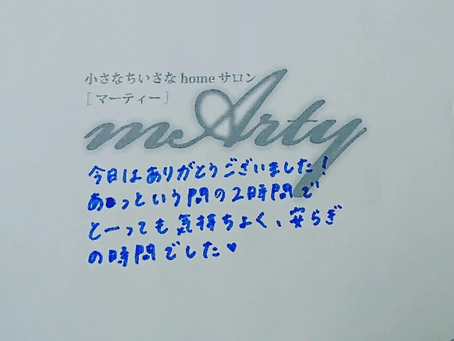 小さなちいさなhomeサロン
[マーティー]
mArty
今日はありがとうございました!
あっという間の2時間で
とーっても気持ちよく、安らぎ
の時間でした♥